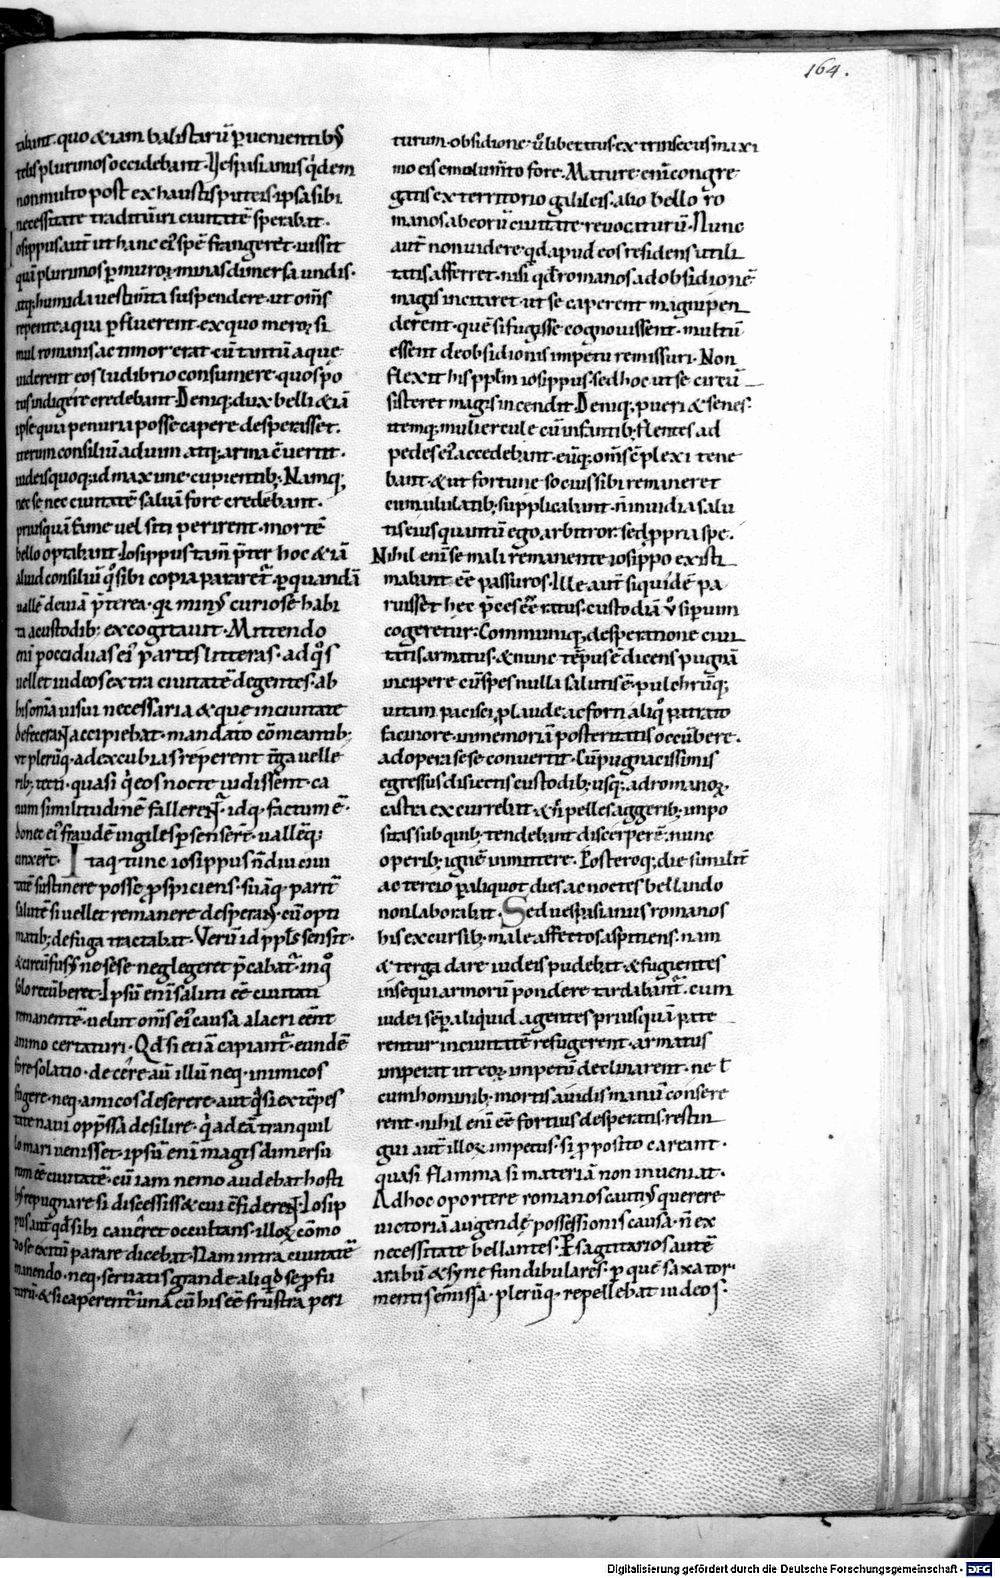 164.
tabant· quo & iam balistarū ꝑuenientibꝰ
telis plurimos occidebant· Uespasianus qͥdem
non multo post exhaustis puteis· ipsa sibi
necessitate traditū iri ciuitatē sperabat·
Iosippus aut̄ ut hanc ei᷒ spē frangeret· iussit
quā plurimos ꝑ muroꝝ minas dimersa undis·
atq; humida uestim̄ta suspendere· ut om̄s
repente aqua ꝑfluerent· ex quo meroꝝ si
mul romanis ac timor erat· cū tantū aque
uiderent eos ludibrio consumere· quos po
tus indigere credebant· Deniq; dux belli & iā
ipse quia penuria posse capere desperasset·
iterum consiliū ad uim atq; arma cōuertit·
iudeis quoq; id maxime cupientib; Namq;
nec se nec ciuitatē saluā fore credebant·
priusquā fame uel siti perirent· mortē
bello optabant· Iosippus tam̄ p̄ter hoc & iā
aliud consiliū qͦ sibi copia pararet᷑· ꝑ quandā
uallē deuiā p̄terea· qͥ minꝰ curiose habi
ta a custodib; excogitauit· Mittendo
eni ꝑ occiduas ei᷒ partes litteras· ad qͦs
uellet iudeos extra ciuitatē degentes· ab
his om̄a uisui necessaria & que in ciuitate
defecerant accipiebat· mandato cōmeantib;
ut plerūq· ad excubias reperent t̄ga uelle
rib; tecti· quasi qͥ eos nocte uidissent· ca
num similitudinē fallerent᷑· idq· factum ē·
donec ei᷒ fraudē uigiles ꝑsenserr̄t· uallēq;
cinxer̄t· Itaq· tunc iosippus n̄ diu ciui
tatē sustinere posse ꝓspiciens· suāq; parit̄
salutē si uellet remanere desperans· cū opti
matib; de fuga tractabat· Verū id ppl̄s sensit·
& circūfusꝰ ne sese neglegeret p̄cabat᷑· in qͦ
solo recūberet· Ipsū enī saluti eē ciuitati
remanentē· uelut om̄s ei᷒ causa alacri eēnt
animo certaturi· Qd̄ si etiā capiant᷑· eundē
fore solatio· decere aut̄ illū neq· inimicos
fugere· neq· amicos deserere· aut qͣsi ex tēpes
tate naui opp̄ssa desilire· qͥ ad eā tranquil
lo mari uenisset· ipsū enī magis dimersu
rum eē ciuitatē· cū iam nemo audebat hosti
bꝰ repugnare si discessiss& cui cōfiderent· Iosip
pus aut̄ qd̄ sibi caueret occultans· illoꝝ cōmo
do se exitū parare dicebat· Nam intra ciuitatē
manendo· neq· seruatis grande aliqd̄ se ꝓfu
turū· & si caperent᷑ unā cū his eē frustra peri
turum· obsidione· u̾ liberatus· extrinsecus maxi
mo eis emolum̄to fore· Mature enī congre
gatis ex territorio galileis· alio bello ro
manos ab eorū ciuitate reuocaturū· Nunc
aut̄ non uidere· qd̄ apud eos residens utili
tatis afferret· nisi qd̄ romanos ad obsidionē
magis incitaret· ut se caperent magni pen
derent· quē si fugisse cognouissent· multū
essent de obsidionis impetu remissuri· Non
flexit his ppl̄m iosippus· sed hoc ut se circū
sisteret magis incendit· Deniq; pueri & senes·
itemq; muliercule cū infantib; flentes ad
pedes ei᷒ accedebant· eūq; om̄s cōplexi tene
bant· & ut fortune socius sibi remaneret
cum ululatib; supplicabant· n̄ inuidia salu
tis eius quantū ego arbitror· sed ꝓpria spe·
Nihil enī se mali remanente iosippo existi
mabant eē passuros· Ille aut̄ siquidē pa
ruisset hec p̄ces eē ratus· custodiā u̾ si rerum
cogeretur· Communiq; desperatione ciui
tatis armatus· & nunc tēpus ē dicens pugnā
incipere cū spes nulla salutis ē· pulchrūq;
uitam pacisci ꝓ laude· ac forti aliqͦ patrato
facinore· in memoriā posteritatis occūbere·
ad opera sese conuertit· Cūq; pugnacissimis
egressus· disiectis custodib; usq; ad romanoꝝ
castra excurrebat· & n̄c pelles aggerib; impo
sitas sub quib; tendebant discerpere· nunc
operib; ignē inmittere· Posteroq; die similit̄
ac tercio ꝑ aliquot dies ac noctes bellando
non laborabat· Sed uespasianus romanos
his excursib; male affectos aspiciens· nam
& terga dare iudeis pudebat· & fugientes
insequi armorū pondere tardabant᷑· cum
iudei sēꝑ aliquid agentes priusquā pate
rentur in ciuitatē refugerent· armatus
imperat ut eoꝝ impetū declinarent· nec
cum hominib; mortis auidis manū consere
rent· nihil enī eē fortius desperatis restin
gui aut̄ illoꝝ impetus· si ꝓposito careant·
quasi flamma si materiā non inueniat·
Ad hoc oportere romanos cautiꝰ querere
uictoriā augendę possessionis causa· n̄ ex
necessitate bellantes· Per sagittarios autē
arabū & syrie fundibulares· ꝑ quē saxa tor·
mentis emissa· plerūq· repellebat iudeos·
Digitalisierung gefördert durch die Deutsche Forschungsgemeinschaft · DFG